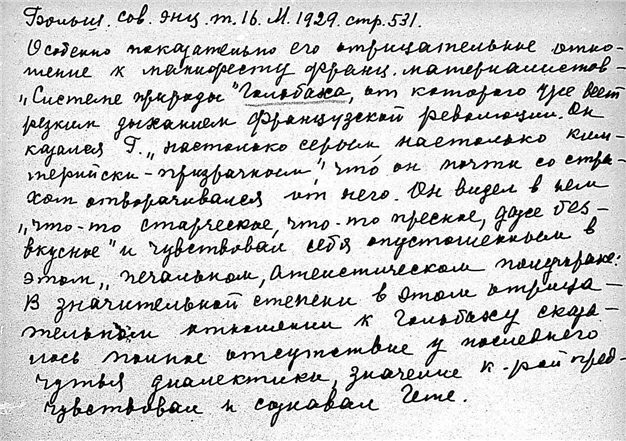 Больш. сов. энц. т. 16. М. 1929. стр. 531.
Особенно показательно его отрицательное отно-
шение к манифесту франц. материалистов -
„Системе природы" Гольбаха, от которого уже веет
резким дыханием французской революции. Он
казался Г. „настолько серым настолько ким-
терийски-призрачным", что он почти со стра-
хом отворачивался от него. Он видел в нем
„что-то старческое, что-то пресное, даже без-
вкусное" и чувствовал себя опустошенным в
этом „печальном, атеистическом полумраке:
В значительной степени в этом отрица-
тельном отношении к Гольбаху сказа-
лось полное отсутствие у последнего
чутья диалектики, значение к-рой пред-
чувствовал и сознавал Гете.